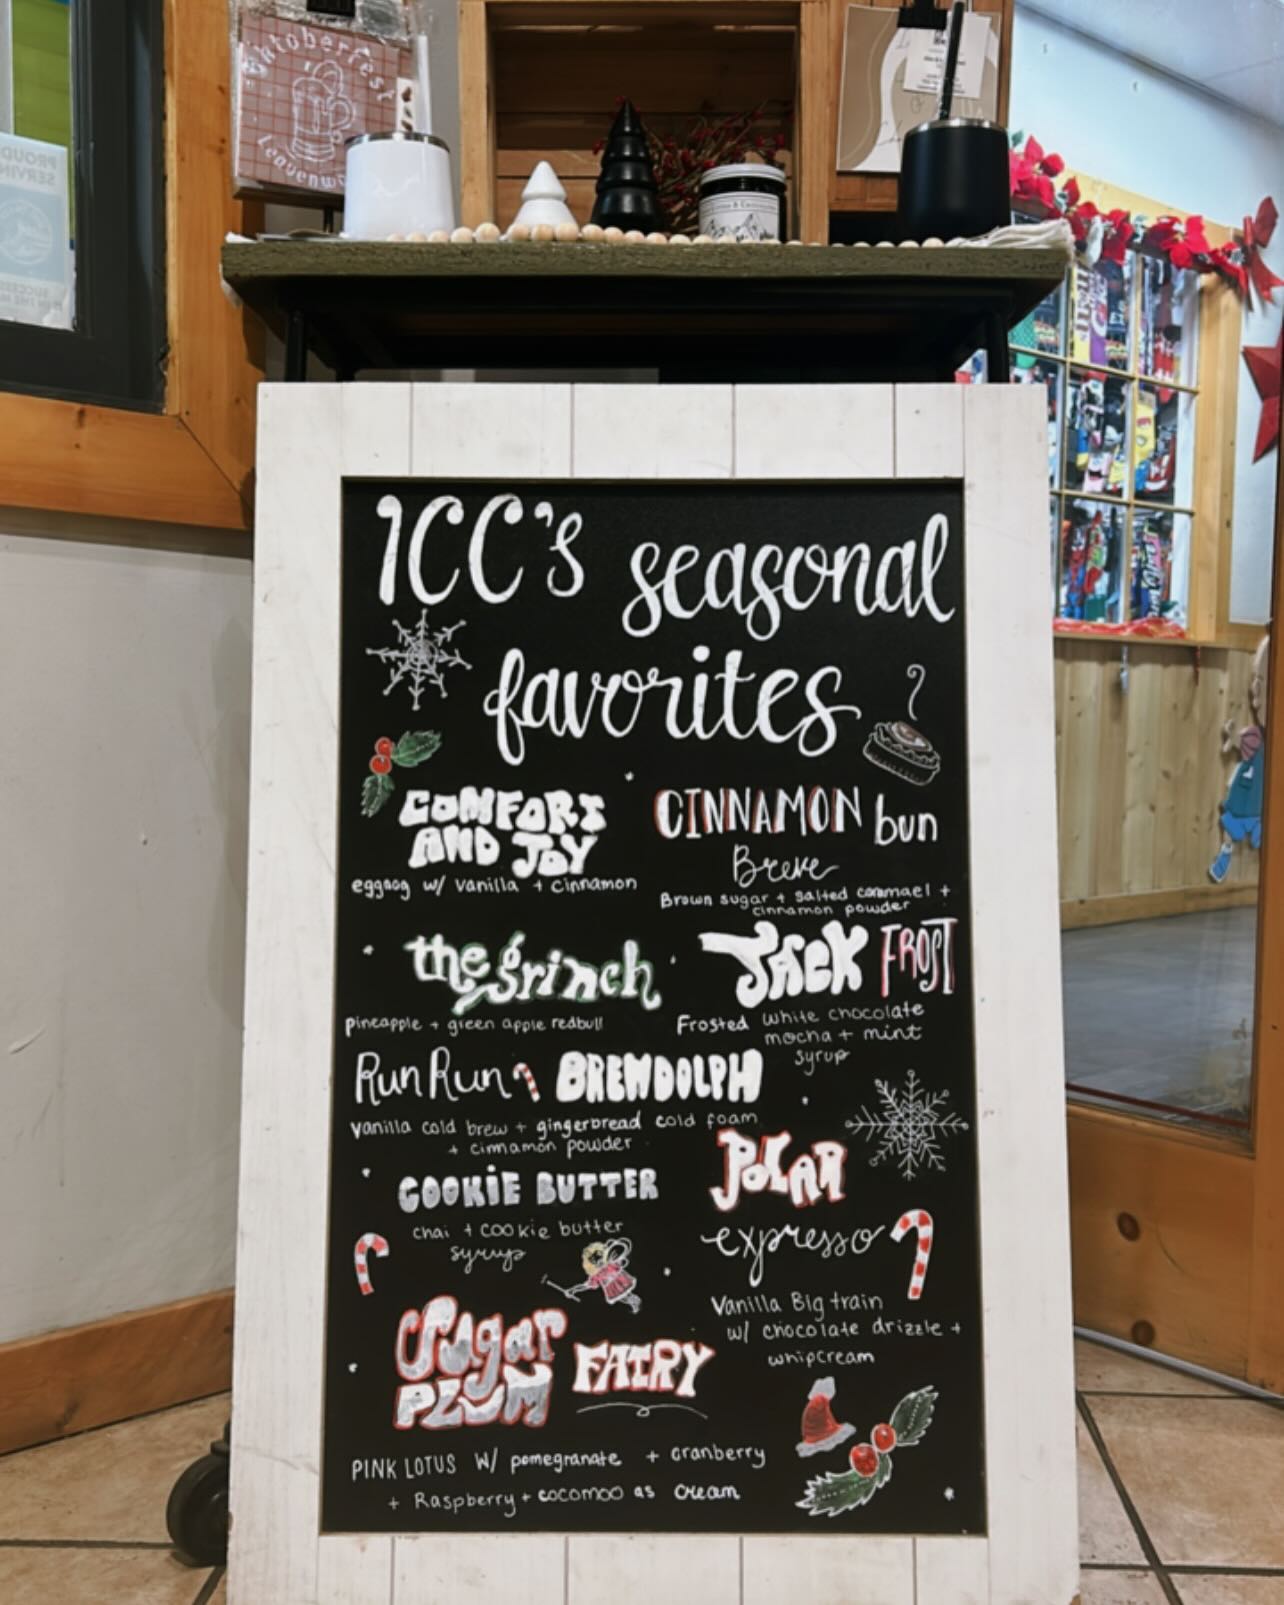 Oktoberfest
Leavenw
PROUD
SERVIN
ICC's seasonal
favorites
COMFORT
AND JOY
eggnog w/ vanilla + cinnamon
CINNAMON bun
Breve
Brown sugar + salted caramael +
cinnamon powder
the grinch
pineapple + green apple redbull
JACK FROST
Frosted white chocolate
mocha + mint
syrup
Run Run BREWDOLPH
vanilla cold brew + gingerbread cold foam
+ cinnamon powder
COOKiE BUTTER
chai + cookie butter
syrup
POLAR
expresso
Vanilla Big train
w/ chocolate drizzle +
whipcream
Sugar
PLUM FAIRY
PINK LOTUS W/ pomegranate + cranberry
+ Raspberry + cocomoo as cream